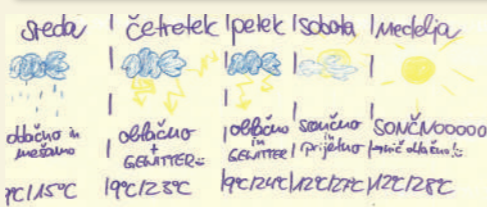 sreda | četrtek | petek | sobota | nedelja
oblačno in | oblačno + GEWITTER | oblačno in GEWITTER | sončno in prijetno | SONČNOOOOO
9°C/23°C | 9°C/24°C | 12°C/27°C | 12°C/28°C